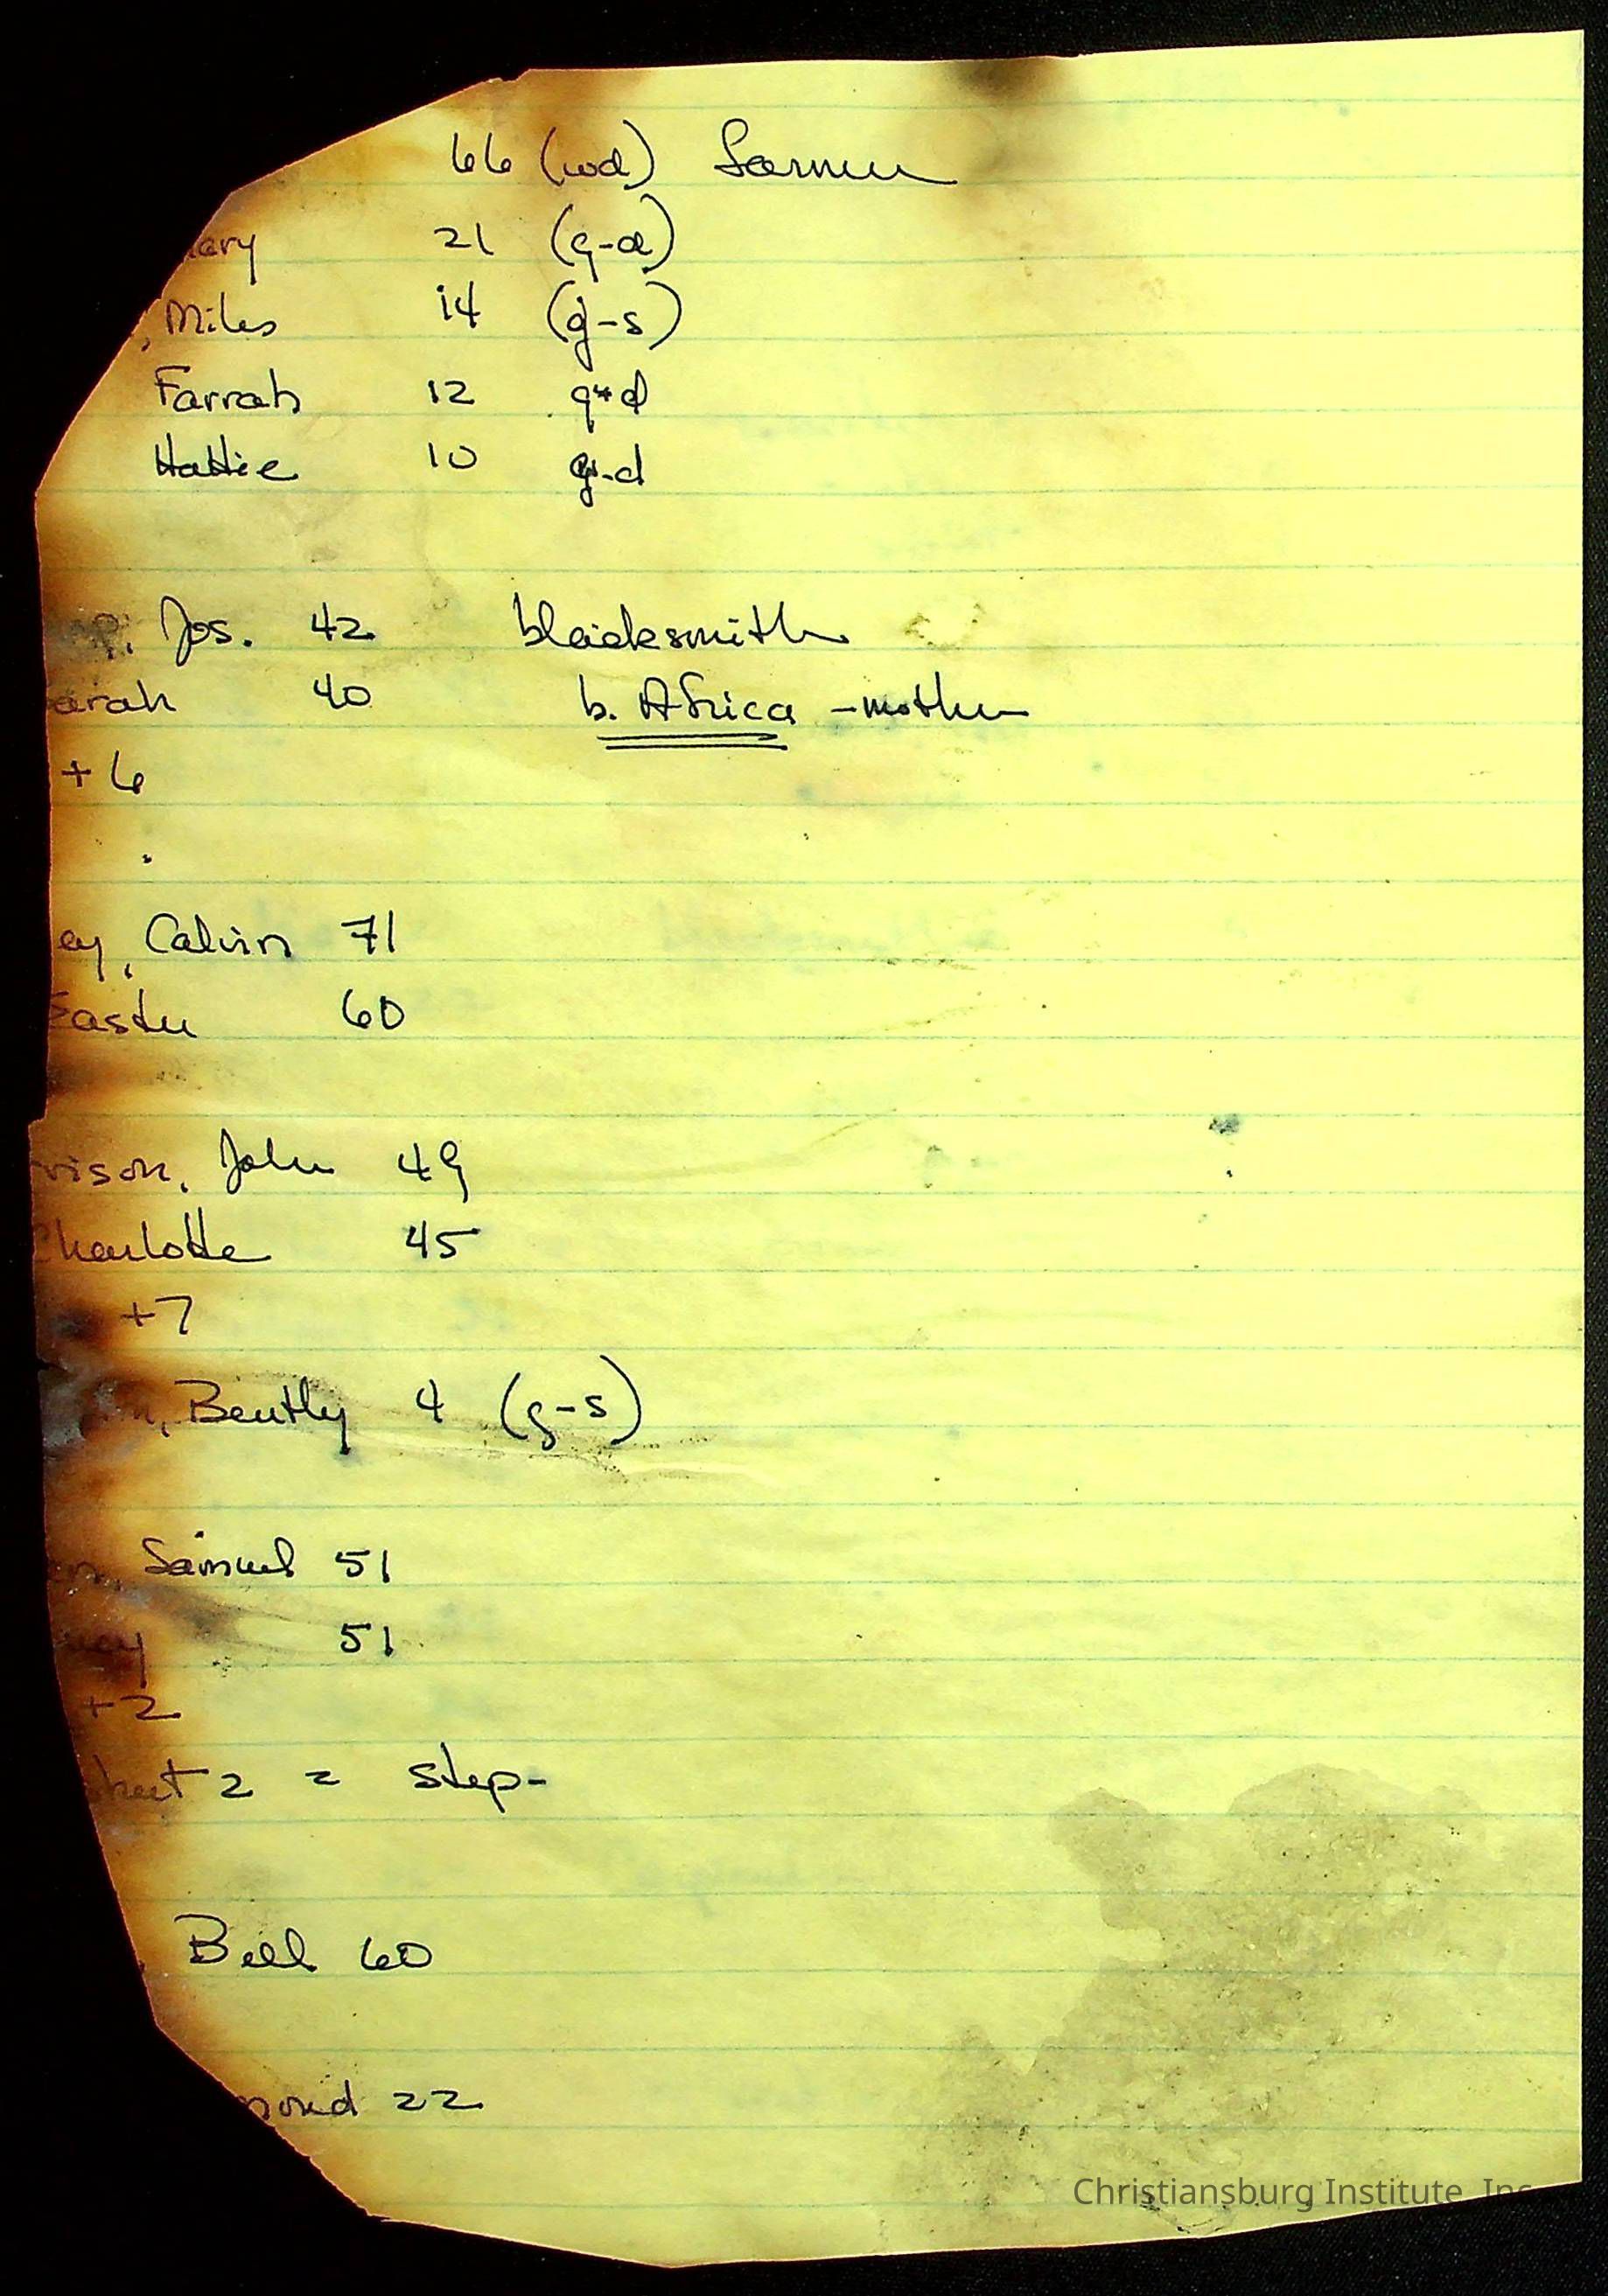 66 (wd) Farmer
ary
21 (g-d)
, Miles 14 (g-s)
Farrah 12 g-d
Hattie 10 g-d
p, Jos. 42 blacksmith
arah 40 b. Africa - mother
+6
ey, Calvin 71
Easter 60
rison, John 49
Charlotte 45
+7
, Bently 4 (g-s)
Samuel 51
51
+2
2 = step-
Bell 60
mond 22
Christiansburg Institute, Inc